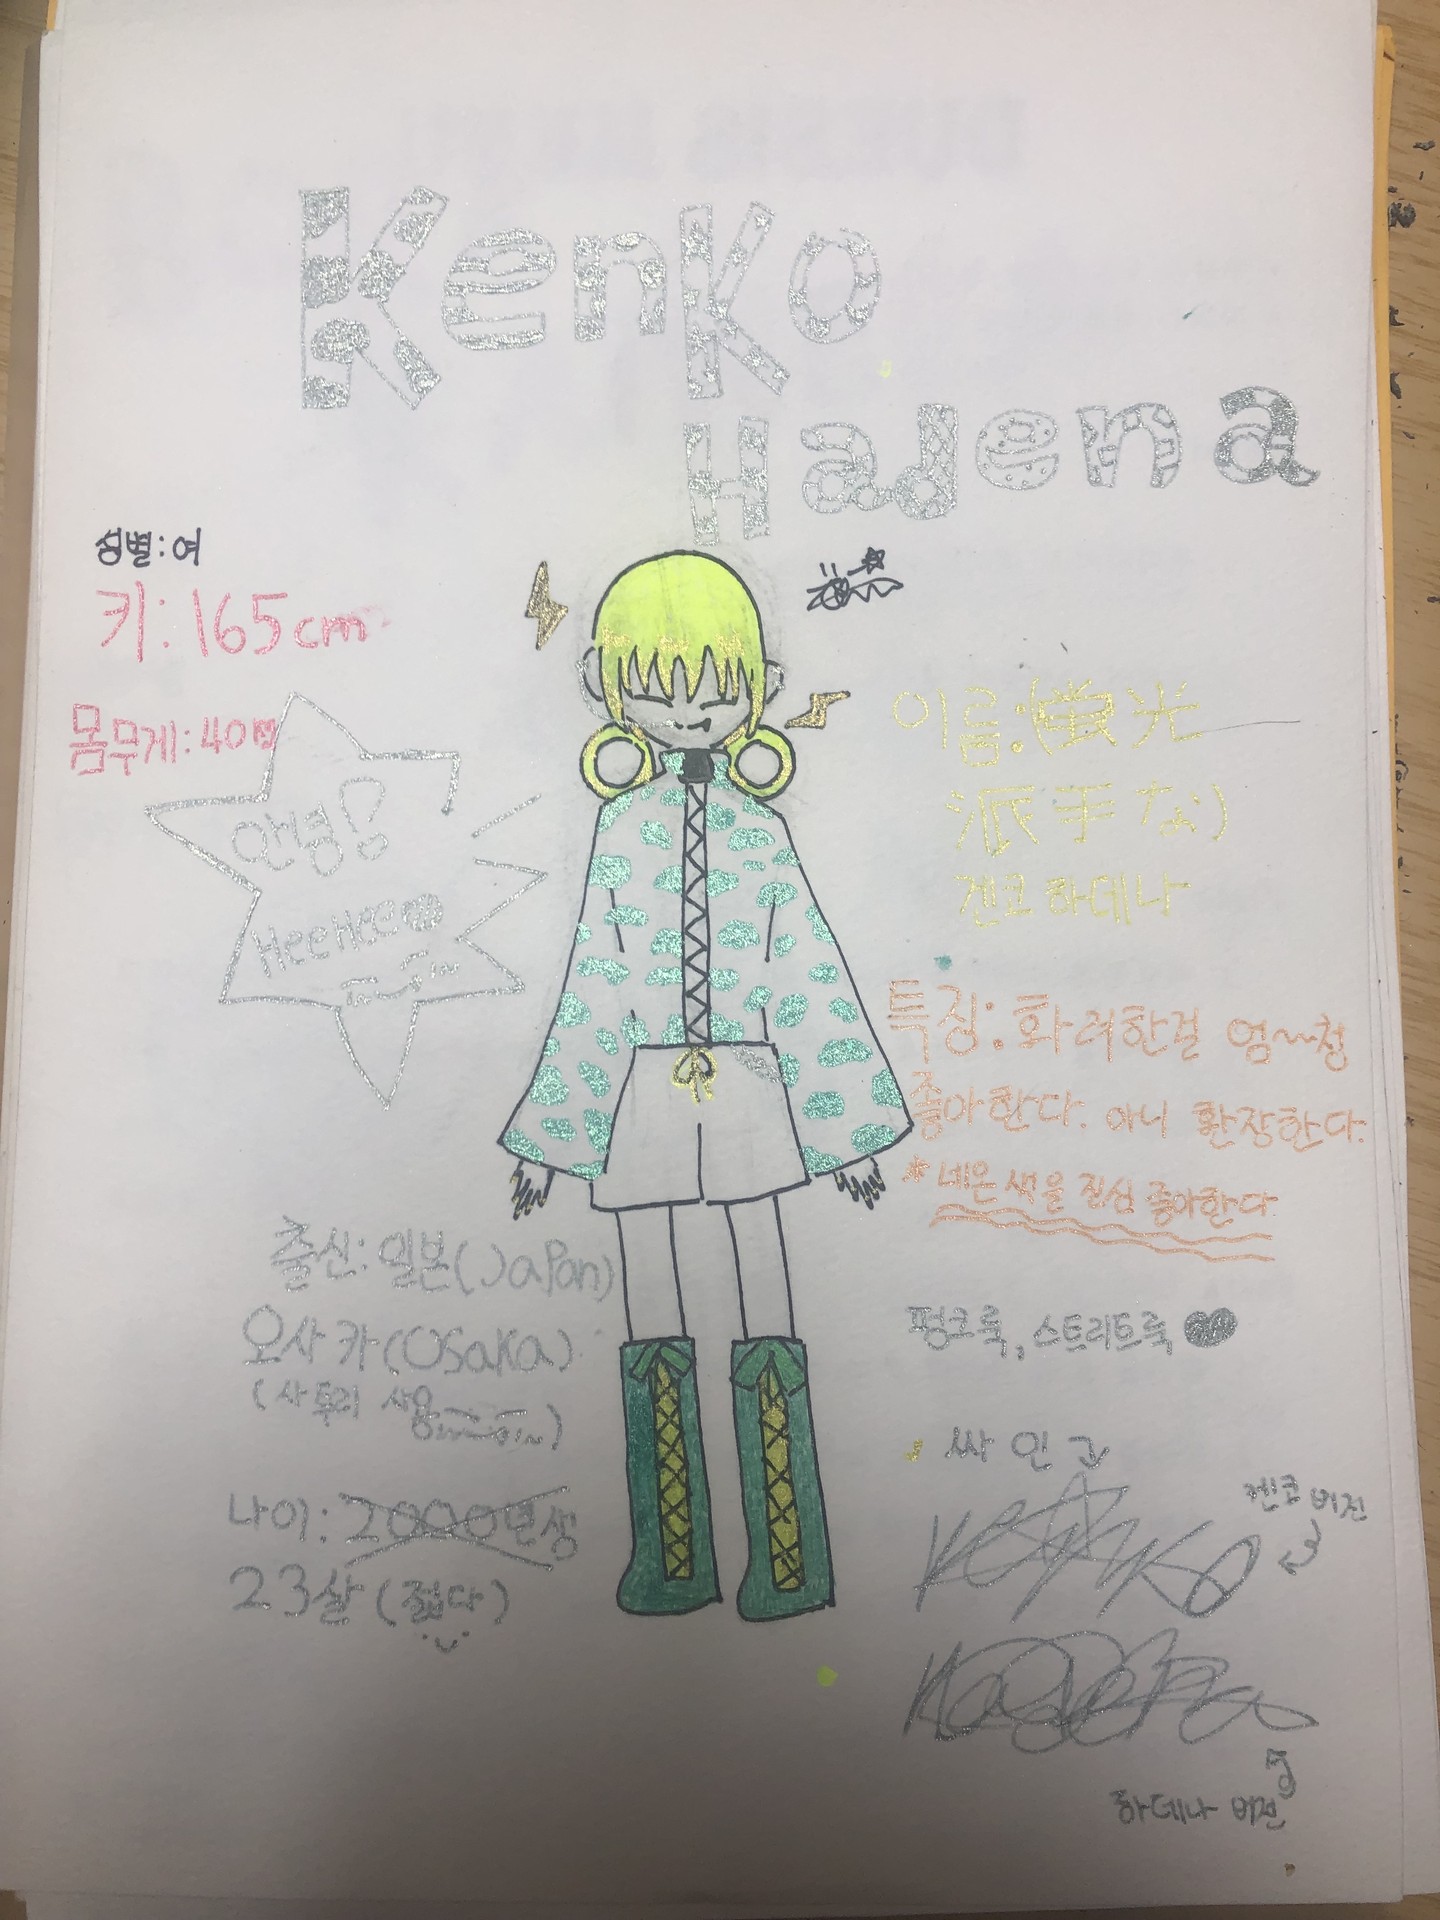 Kenko
Hadena
성별:여
키:165cm
몸무게:40
안녕!
HeeHee
이름:(蛍光
派手な)
겐코 하데나
특징:화려한걸 엄~청
좋아한다. 아니 환장한다.
*네온색을 진심 좋아한다
출신:일본(Japan)
오사카(Osaka)
(사투리 사용)
펑크룩, 스트리트룩
나이:2000년생
23살(젊다)
싸인
겐코 버전
Kenko
Hadena
하데나 버전